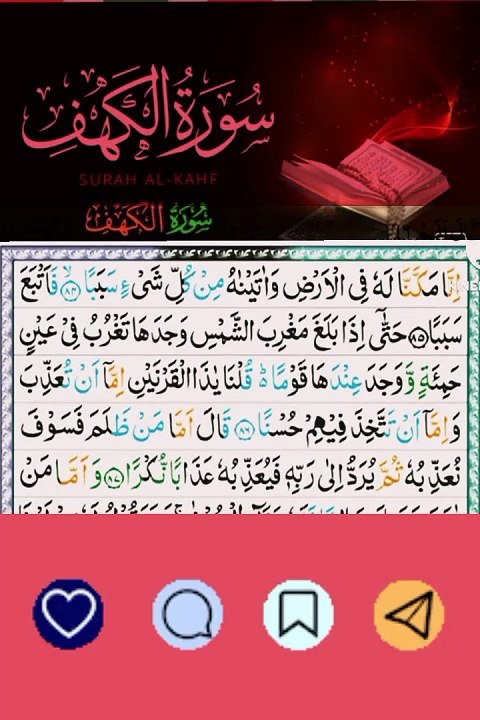 سُورَةُ الْكَهْفِ
SURAH AL-KAHF
سُورَةُ الْكَهْفِ
اِنَّا مَكَّنَّا لَهٗ فِی الْاَرْضِ وَاٰتَیْنٰهُ مِنْ كُلِّ شَیْءٍ سَبَبًا ﴿۸۴﴾ فَاَتْبَعَ
سَبَبًا ﴿۸۵﴾ حَتّٰۤی اِذَا بَلَغَ مَغْرِبَ الشَّمْسِ وَجَدَهَا تَغْرُبُ فِیْ عَیْنٍ
حَمِئَةٍ وَّ وَجَدَ عِنْدَهَا قَوْمًا ؕ۬ قُلْنَا یٰذَا الْقَرْنَیْنِ اِمَّاۤ اَنْ تُعَذِّبَ
وَ اِمَّاۤ اَنْ تَتَّخِذَ فِیْهِمْ حُسْنًا ﴿۸۶﴾ قَالَ اَمَّا مَنْ ظَلَمَ فَسَوْفَ
نُعَذِّبُهٗ ثُمَّ یُرَدُّ اِلٰی رَبِّهٖ فَیُعَذِّبُهٗ عَذَابًا نُّكْرًا ﴿۸۷﴾ وَ اَمَّا مَنْ